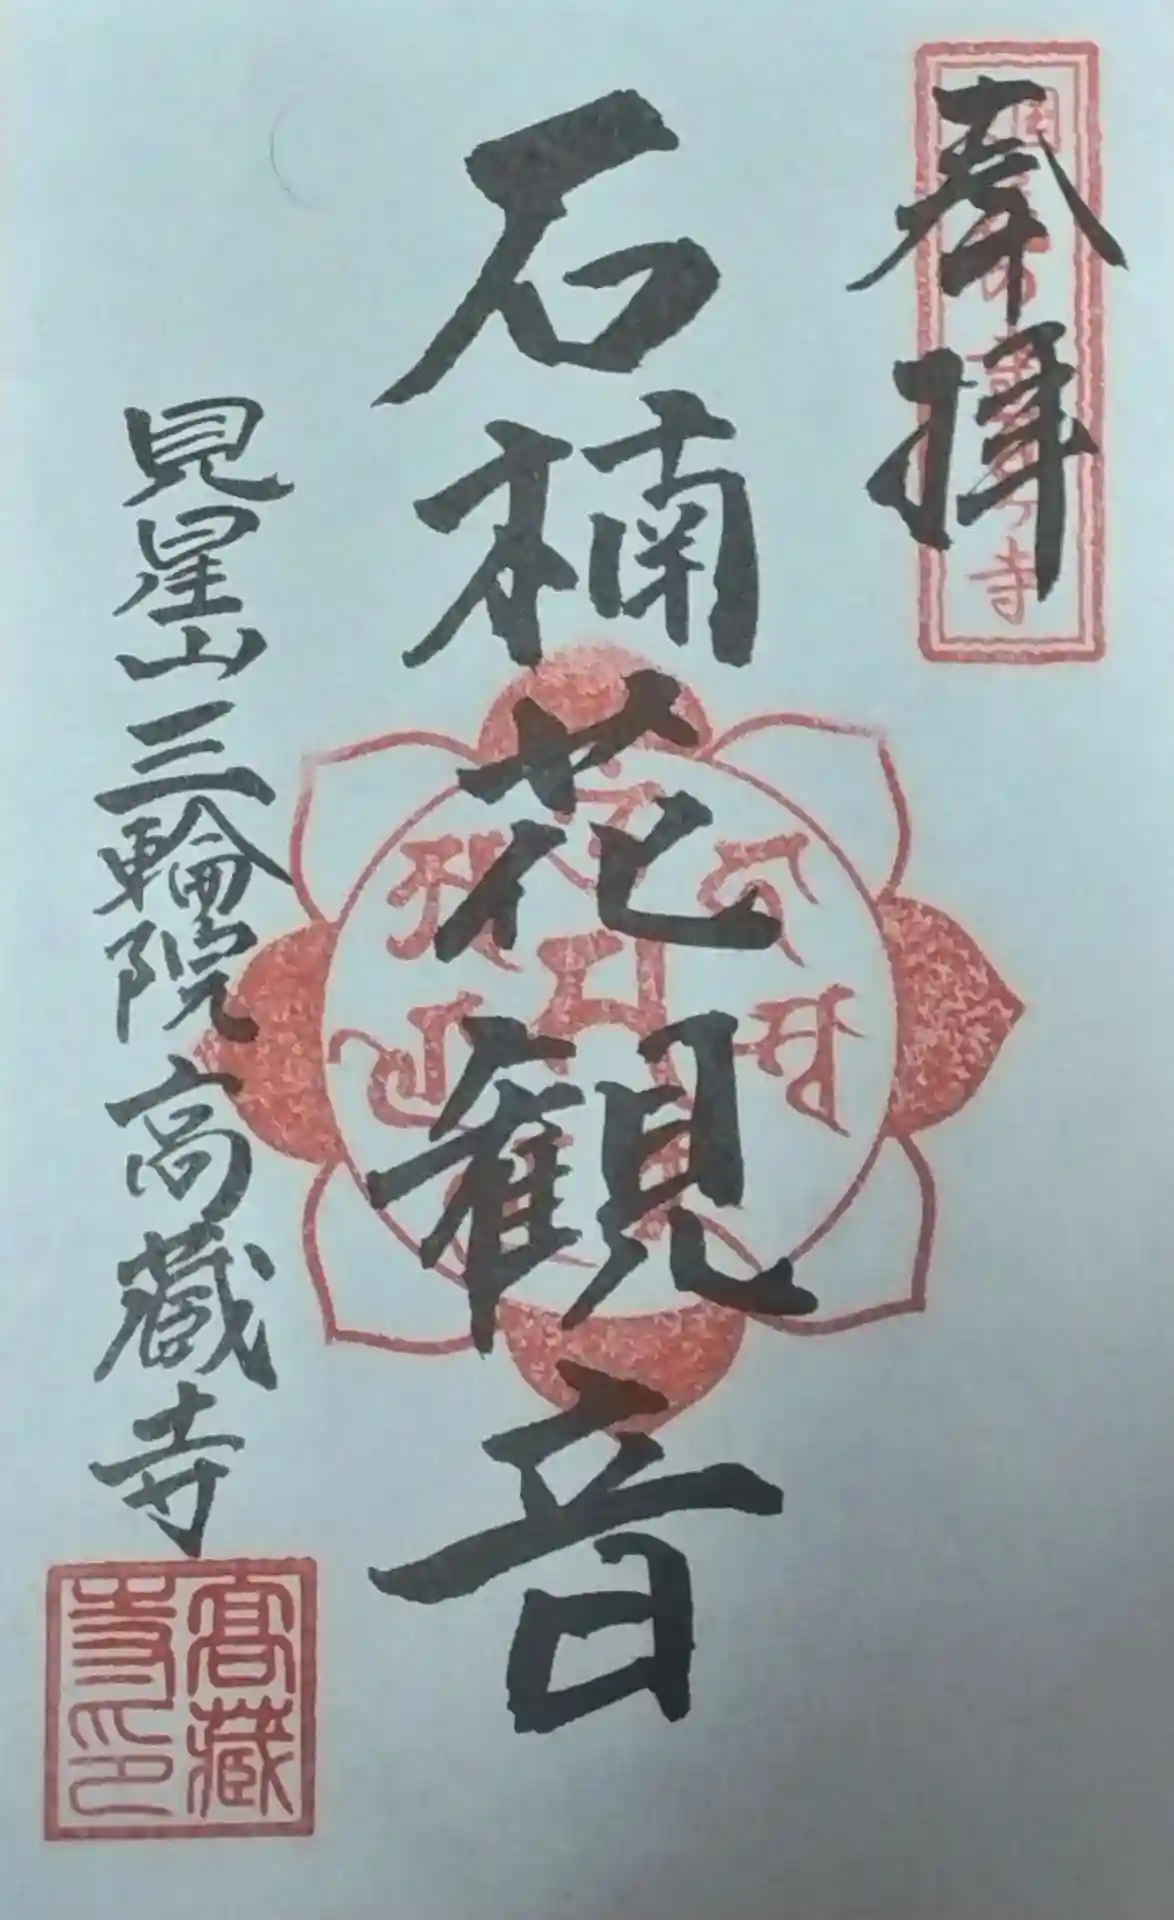 奉拝
石楠花観音
見星山三輪院高蔵寺
高藏寺印